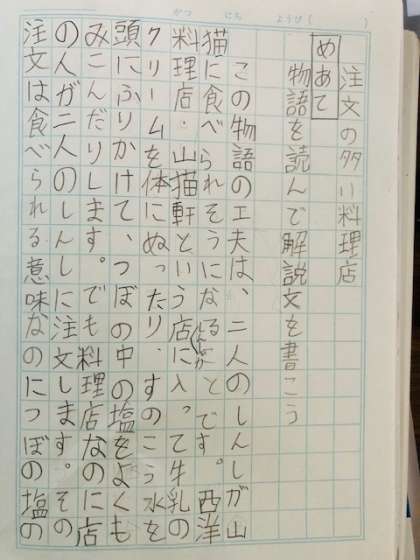 がつ にち ようび ( )
注文の多い料理店
めあて
物語を読んで解説文を書こう
この物語の工夫は、二人のしんしが山
猫に食べられそうになることです。西洋
料理店・山猫軒という店に入って牛乳の
クリームを体にぬったり、すのこう水を
頭にふりかけて、つぼの中の塩をよくも
みこんだりします。でも料理店なのに店
の人が二人のしんしに注文します。その
注文は食べられる意味なのにつぼの塩の